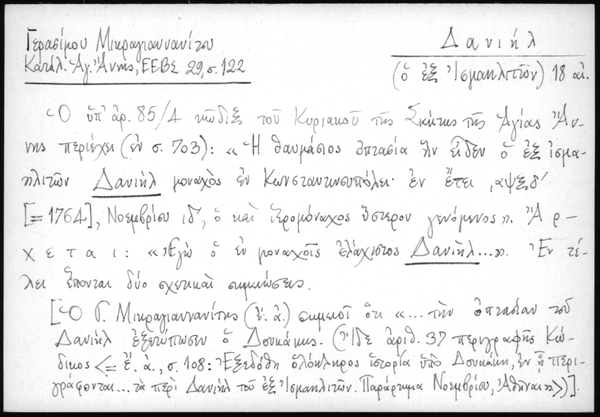 Γερασίμου Μικραγιαννανίτου
Κατάλ. Ἁγ. Ἄννης, ΕΕΒΣ 29, σ. 122
Δανιήλ
(ὁ ἐξ Ἰσμαηλιτῶν) 18 αἰ.
Ὁ ὑπ' ἀρ. 85/4 κῶδιξ τοῦ Κυριακοῦ τῆς Σκήτης τῆς Ἁγίας Ἄν-
νης περιέχει (ἐν σ. 703): «Ἡ θαυμάσιος ὀπτασία ἣν εἶδεν ὁ ἐξ ἰσμα-
ηλιτῶν Δανιὴλ μοναχὸς ἐν Κωνσταντινουπόλει· ἐν ἔτει ͵αψξδ´
[= 1764], Νοεμβρίου ιδ´, ὁ καὶ ἱερομόναχος ὕστερον γενόμενος». Ἄρ-
χεται: «Ἐγὼ ὁ ἐν μοναχοῖς ἐλάχιστος Δανιὴλ...». Ἐν τέ-
λει ἕπονται δύο σχετικαὶ σημειώσεις.
[Ὁ Γ. Μικραγιαννανίτης (ἔ. ἀ.) σημειοῖ ὅτι «...τὴν ὀπτασίαν τοῦ
Δανιὴλ ἐξετύπωσεν ὁ Δουκάκης. (Ἴδε ἀριθ. 37 περιγραφῆς Κώ-
δικος <= ἔ. ἀ., σ. 108: Ἐξεδόθη ὁλόκληρος ἱστορία ὑπὸ Δουκάκη, ἐν ᾗ περι-
γράφονται... τὰ περὶ Δανιὴλ τοῦ ἐξ Ἰσμαηλιτῶν. Παράρτημα Νοεμβρίου, Ἀθῆναι»>)].